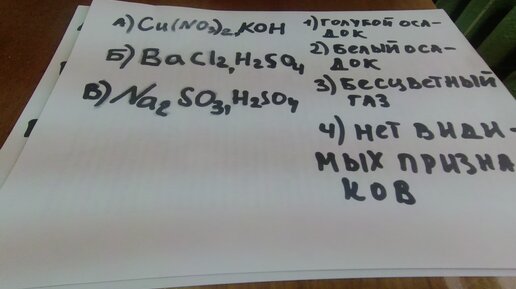 А) Cu(NO3)2,KOH
Б) BaCl2,H2SO4
В) Na2SO3,H2SO4
1) ГОЛУБОЙ ОСА-
ДОК
2) БЕЛЫЙ ОСА-
ДОК
3) БЕСЦВЕТНЫЙ
ГАЗ
4) НЕТ ВИДИ-
МЫХ ПРИЗНА
КОВ